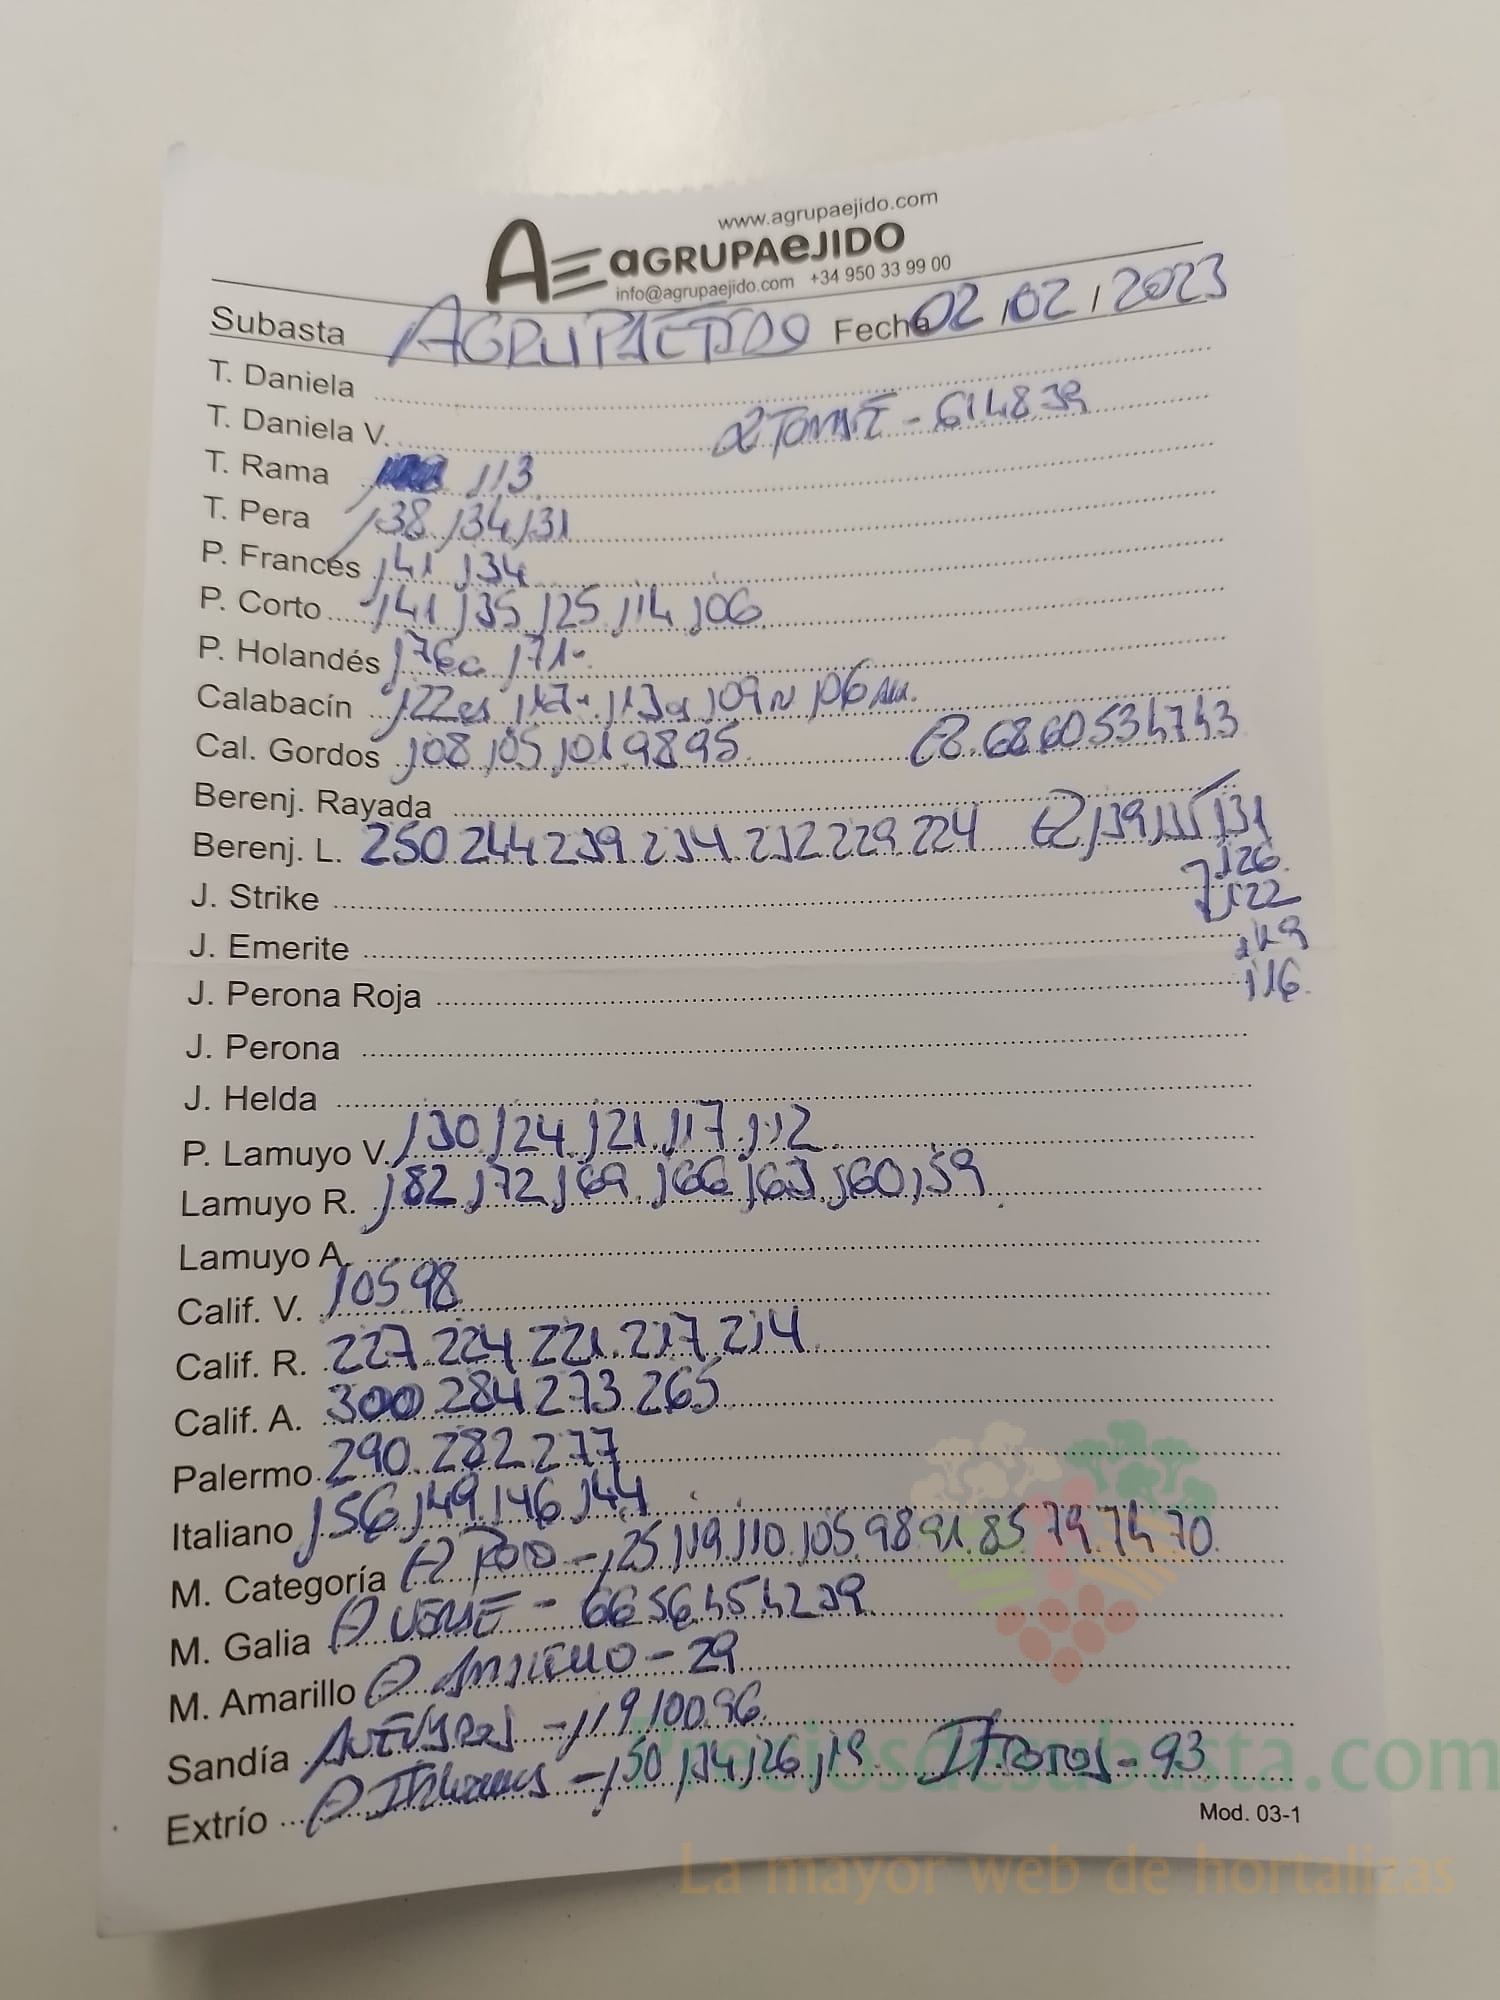 www.agrupaejido.com
AE aGRUPAeJIDO
info@agrupaejido.com +34 950 33 99 00
Subasta AGRUPAEJIDO Fecha 02/02/2023
T. Daniela
T. Daniela V. - 61 48 39
T. Rama 113
T. Pera 138 134 131
P. Francés 141 134
P. Corto 141 135 125 114 106
P. Holandés 176 171
Calabacín 122 117 113 109 106
Cal. Gordos 108 105 101 98 95 68 60 53 47 43
Berenj. Rayada
Berenj. L. 250 244 239 234 232 229 224 139 131
126
J. Strike 122
J. Emerite 119
J. Perona Roja 116
J. Perona
J. Helda
P. Lamuyo V. 130 124 121 117 112
Lamuyo R. 182 172 169 166 163 160 159
Lamuyo A.
Calif. V. 105 98
Calif. R. 227 224 221 217 214
Calif. A. 300 284 273 265
Palermo 290 282 277
Italiano 156 149 146 144
M. Categoría ROJO - 125 119 110 105 98 91 85 79 74 70
M. Galia VERDE - 66 56 45 42 39
M. Amarillo AMARILLO - 29
Sandía - 119 100 96
Extrío - 150 134 126 119 - 93
Mod. 03-1
Preciosdesubasta.com
La mayor web de hortalizas